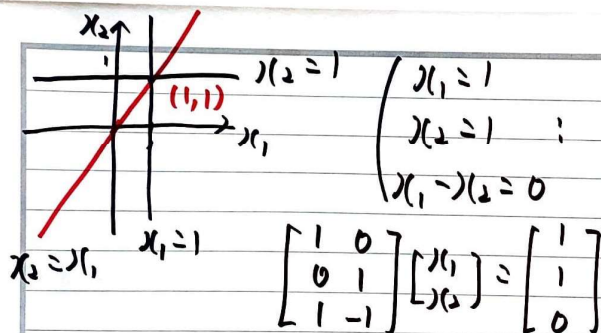 x₂
1
x₂ = 1
(1,1)
x₁
x₂ = x₁
x₁ = 1
x₁ = 1
x₂ = 1 :
x₁ - x₂ = 0
[1 0; 0 1; 1 -1] [x₁; x₂] = [1; 1; 0]